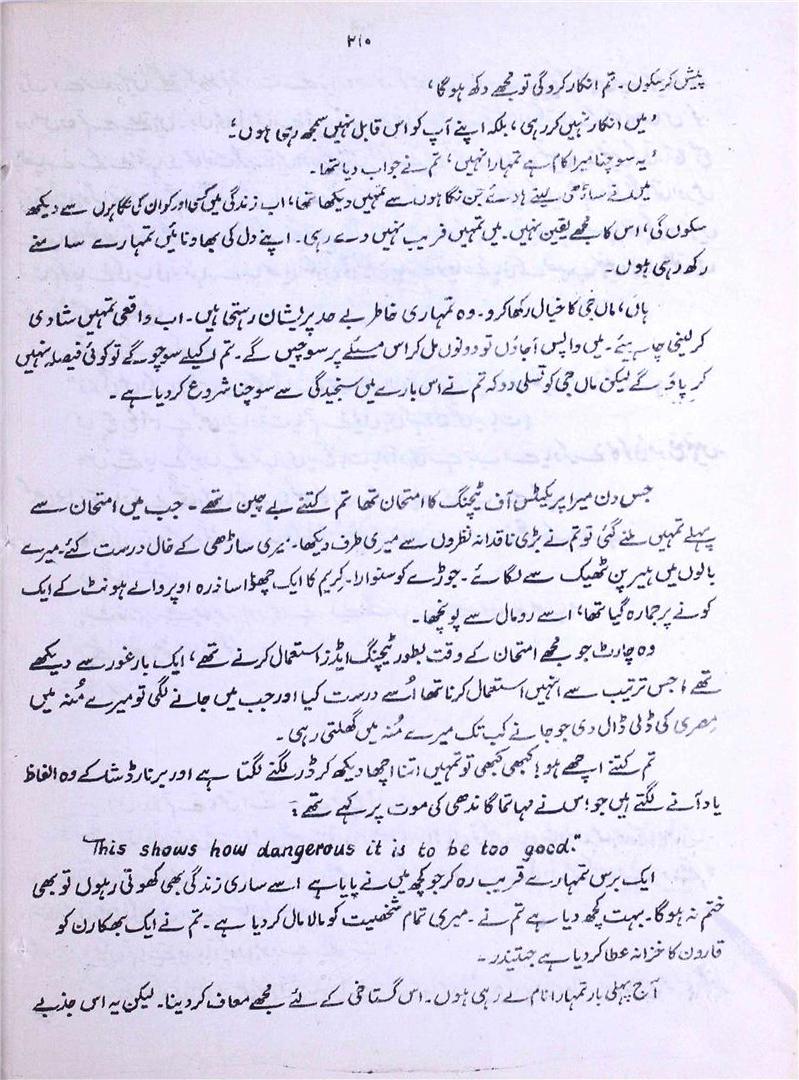 ۲۱۰
پیش کر سکوں۔ تم انکار کرو گی تو مجھے دکھ ہوگا،
"میں انکار نہیں کر رہی، بلکہ اپنے آپ کو اس قابل نہیں سمجھ رہی ہوں۔"
"یہ سوچنا میرا کام ہے تمہارا نہیں، تم نے جواب دیا تھا۔
میں نے ساڑھی لیتے ہوئے جن نگاہوں سے تمہیں دیکھا تھا، اب زندگی میں کسی اور کو ان کی نگاہوں سے دیکھ
سکوں گی، اس کا مجھے یقین نہیں۔ میں تمہیں فریب نہیں دے رہی۔ اپنے دل کی بھاونائیں تمہارے سامنے
رکھ رہی ہوں۔
ہاں، ماں جی کا خیال رکھا کرو۔ وہ تمہاری خاطر بے حد پریشان رہتی ہیں۔ اب واقعی تمہیں شادی
کر لینی چاہیئے۔ میں واپس آجاؤں تو دونوں مل کر اس مسئلے پر سوچیں گے۔ تم اکیلے سوچو گے تو کوئی فیصلہ نہیں
کر پاؤ گے لیکن ماں جی کو تسلی دو کہ تم نے اس بارے میں سنجیدگی سے سوچنا شروع کر دیا ہے۔
جس دن میرا پریکٹس آف ٹیچنگ کا امتحان تھا تم کتنے بے چین تھے۔ جب میں امتحان سے
پہلے تمہیں ملنے گئی تو تم نے بڑی ناقدانہ نظروں سے میری طرف دیکھا۔ میری ساڑھی کے فال درست کئے۔ میرے
بالوں میں ہیر پن ٹھیک سے لگائے۔ جوڑے کو سنوارا۔ کریم کا ایک چھوٹا سا ذرہ اوپر والے ہونٹ کے ایک
کونے پر جما رہ گیا تھا، اسے رومال سے پونچھا۔
وہ چارٹ جو مجھے امتحان کے وقت بطور ٹیچنگ ایڈز استعمال کرنے تھے، ایک بار غور سے دیکھے
تھے، جس ترتیب سے انہیں استعمال کرنا تھا اُسے درست کیا اور جب میں جانے لگی تو میرے مُنہ میں
مصری کی ڈلی ڈال دی جو جانے کب تک میرے مُنہ میں گھلتی رہی۔
تم کتنے اچھے ہو! کبھی کبھی تو تمہیں اتنا اچھا دیکھ کر ڈر لگنے لگتا ہے اور برنارڈ شا کے وہ الفاظ
یاد آنے لگتے ہیں جو اس نے مہاتما گاندھی کی موت پر کہے تھے:
"This shows how dangerous it is to be too good."
ایک برس تمہارے قریب رہ کر جو کچھ میں نے پایا ہے اسے ساری زندگی بھی کھوتی رہوں تو بھی
ختم نہ ہوگا۔ بہت کچھ دیا ہے تم نے۔ میری تمام شخصیت کو مالا مال کر دیا ہے۔ تم نے ایک بھکارن کو
قارون کا خزانہ عطا کر دیا ہے جیتندر۔
آج پہلی بار تمہارا نام لے رہی ہوں۔ اس گستاخی کے لئے مجھے معاف کر دینا۔ لیکن یہ اس جذبے